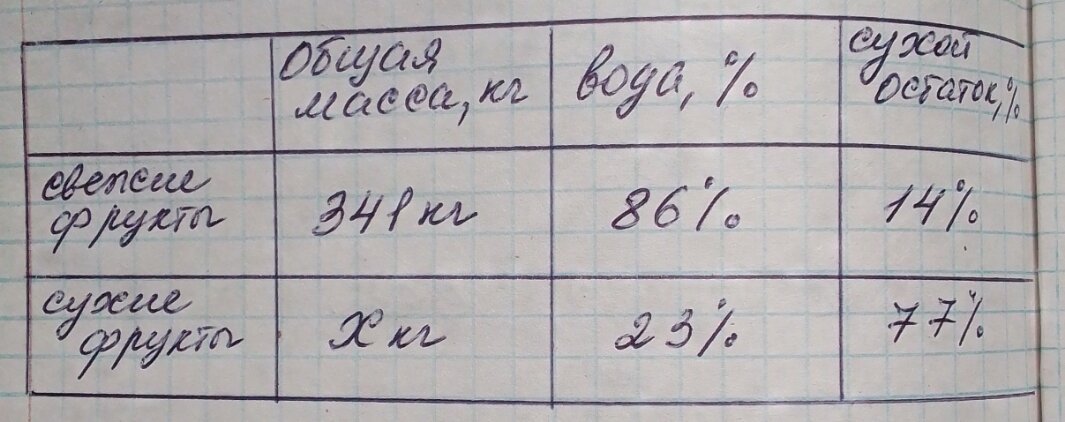 общая масса, кг
вода, %
сухой остаток, %
свежие фрукты
341 кг
86%
14%
сухие фрукты
x кг
23%
77%